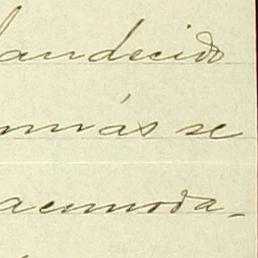 landecido
más se
acomoda-